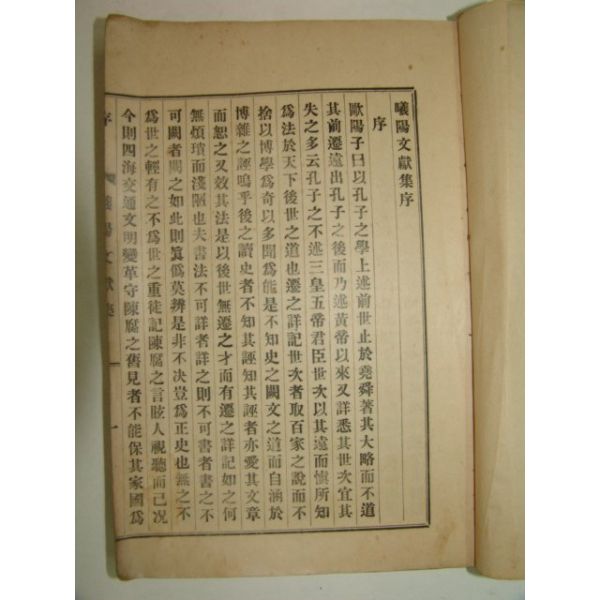 曦陽文獻集序
序
歐陽子曰以孔子之學上述前世止於堯舜著其大略而不道
其前遷遠出孔子之後而乃述黃帝以來又詳悉其世次宜其
失之多云孔子之不述三皇五帝君臣世次以其遠而愼所知
爲法於天下後世之道也遷之詳記世次者取百家之說而不
捨以博學爲奇以多聞爲能是不知史之闕文之道而自涵於
博雜之誣嗚乎後之讀史者不知其誣知其誣者亦愛其文章
而恕之又效其法是以後世無遷之才而有遷之詳記如之何
無煩瑣而淺陋也夫書法不可詳者詳之則不可書者書之不
可闕者闕之如此則眞僞莫辨是非不決豈爲正史也無之不
爲世之輕有之不爲世之重徒記陳腐之言眩人視聽而已况
今則四海交通文明變革守陳腐之舊見者不能保其家國爲
序 曦陽文獻集 一